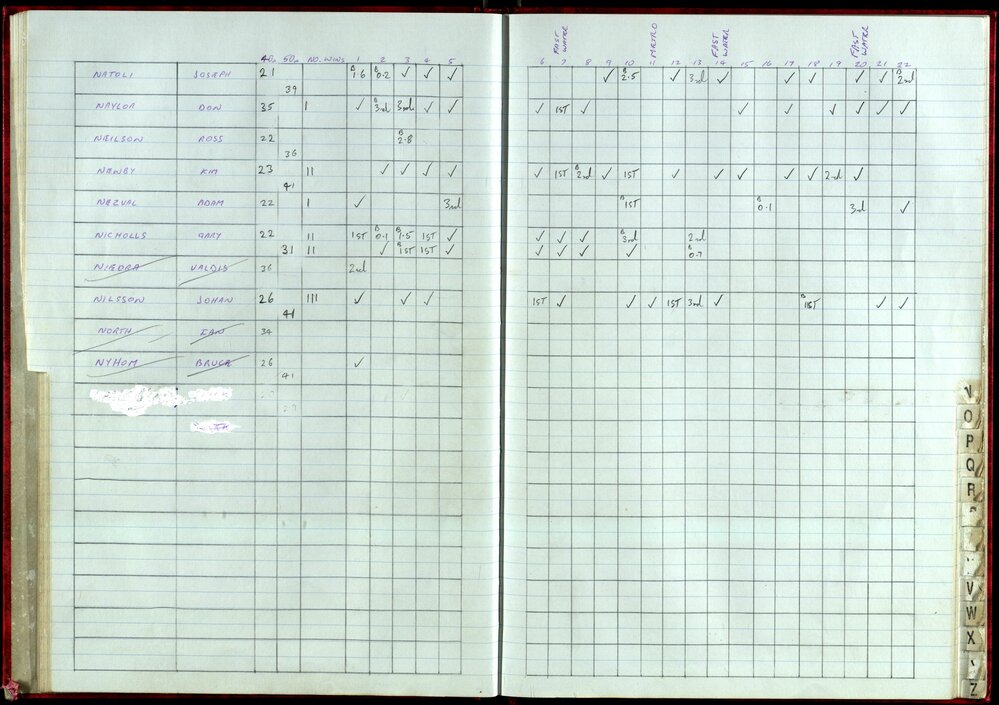 FAST WATER METRO FAST WATER FAST WATER
40m 50m NO. WINS 1 2 3 4 5 6 7 8 9 10 11 12 13 14 15 16 17 18 19 20 21 22
NATOLI JOSEPH 21 B 1.6 B 0.2 ✓ ✓ ✓ ✓ B 2.5 ✓ 3rd ✓ ✓ ✓ ✓ ✓ B 2nd
39
NAYLOR DON 35 I ✓ B 3rd 3rd ✓ ✓ ✓ 1ST ✓ ✓ ✓ ✓ ✓ ✓ ✓
NEILSON ROSS 22 B 2.8
36
NEWBY KIM 23 II ✓ ✓ ✓ ✓ ✓ 1ST B 2nd ✓ 1ST ✓ ✓ ✓ ✓ ✓ 2nd ✓
41
NEZVAL ADAM 22 I ✓ 3rd B 1ST B 0.1 3rd ✓
NICHOLLS GARY 22 II 1ST B 0.1 B 1.5 1ST ✓ ✓ ✓ ✓ B 3rd 2nd
31 II ✓ B 1ST 1ST ✓ ✓ ✓ ✓ ✓ B 0.7
NIEDRA VALDIS 36 2nd
NILSSON JOHAN 26 III ✓ ✓ ✓ 1ST ✓ ✓ ✓ 1ST 3rd ✓ B 1ST ✓ ✓
41
NORTH IAN 34
NYHOM BRUCE 26 ✓
41
N
O
P
Q
R
V
W
X
Z